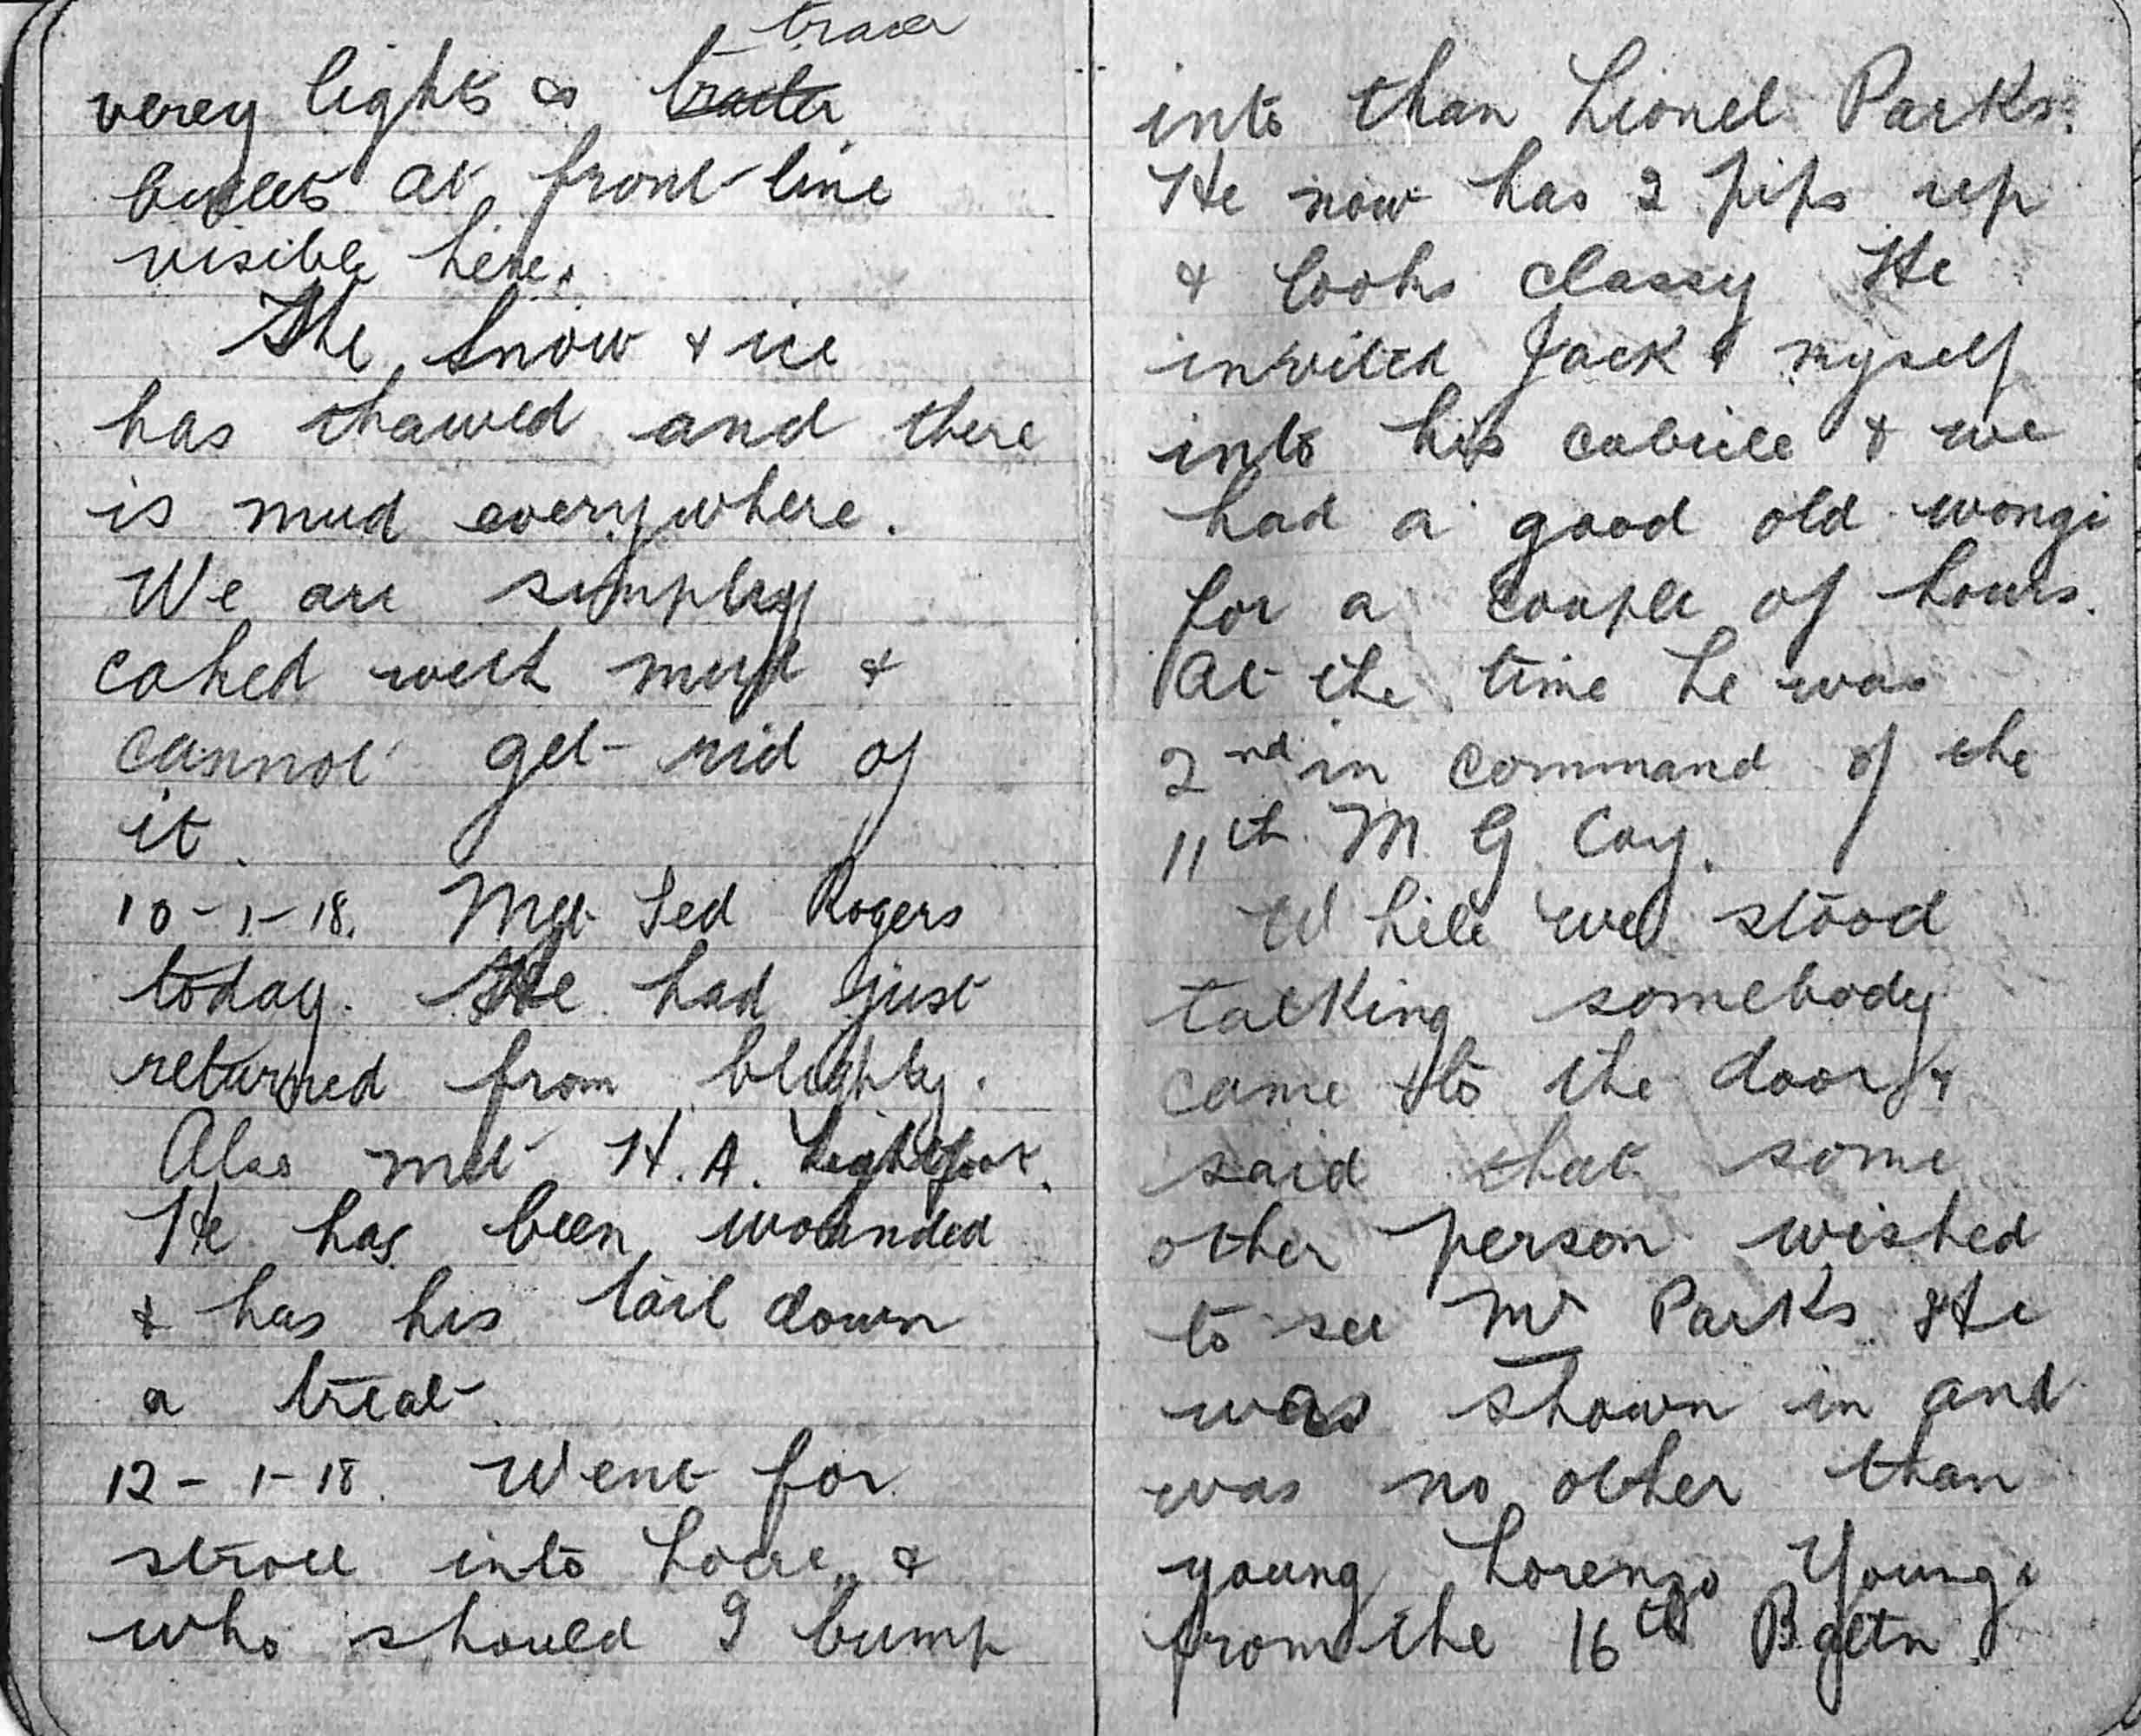 tracer
verey lights & tracter
bullets at front line
visible here.
The snow & ice
has thawed and there
is mud everywhere.
We are simply
caked with mud &
cannot get rid of
it.
10-1-18. Met Ted Rogers
today. He had just
returned from blighty.
Also met H. A. Lightfoot.
He has been wounded
& has his tail down
a treat.
12-1-18. Went for
stroll into Locre &
who should I bump
into than Lionel Parks.
He now has 2 pips up
& looks classy He
invited Jack & myself
into his cubicle & we
had a good old wongi
for a couple of hours.
At the time he was
2nd in command of the
11th M. G. Coy.
While we stood
talking somebody
came to the door &
said that some
other person wished
to see Mr Parks. He
was shown in and
was no other than
young Lorenzo Young
from the 16th Battn.